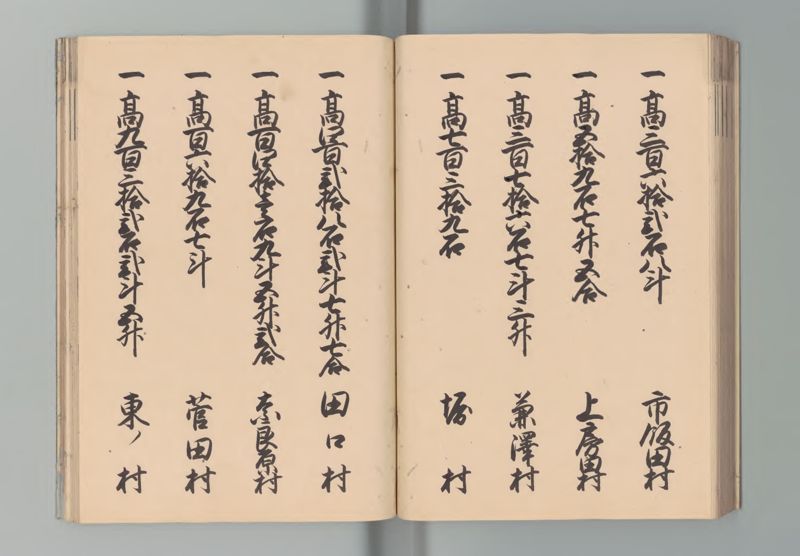 一高三百六拾弐石八斗 市飯田村
一高五拾九石七升五合 上房田村
一高三百七拾六石七斗三升 兼澤村
一高七百三拾九石 堀村
一高四百弐拾八石弐斗七升七合 田口村
一高百四拾壱石九斗五升弐合 奈良原村
一高百六拾九石七斗 菅田村
一高九百三拾弐石弐斗五升 東ノ村